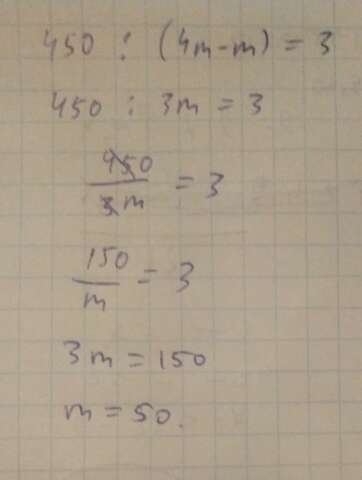 450 : (4m-m) = 3
450 : 3m = 3
450
3m = 3
150
m = 3
3m = 150
m = 50.